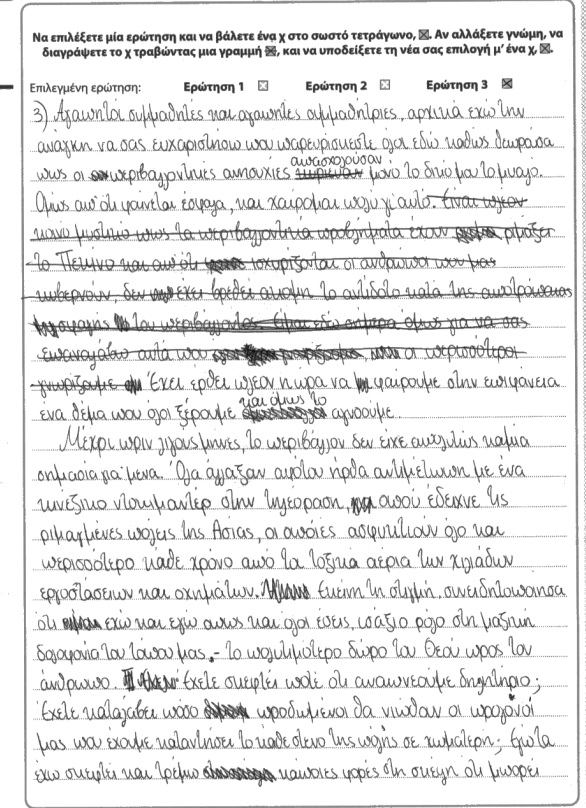 Να επιλέξετε μία ερώτηση και να βάλετε ένα χ στο σωστό τετράγωνο, ☒. Αν αλλάξετε γνώμη, να
διαγράψετε το χ τραβώντας μια γραμμή ☒, και να υποδείξετε τη νέα σας επιλογή μ' ένα χ, ☒.
Επιλεγμένη ερώτηση: Ερώτηση 1 ☒ Ερώτηση 2 ☒ Ερώτηση 3 ☒
3) Αγαπητοί συμμαθητές και αγαπητές συμμαθήτριες, αρχικά εχω την
ανάγκη να σας ευχαριστήσω που παρευρίσκεστε όλοι εδώ καθώς θεωρούσα
πως οι περιβαλλοντικές ανησυχίες απασχολούσαν μόνο το δικό μου το μυαλό.
Όμως απ' ότι φαίνεται έσφαλα, και χαίρομαι πολύ γι' αυτό. Είναι πλέον
κοινό μυστικό πως τα περιβαλλοντικά προβλήματα έχουν ρημάξει
το Πεκίνο και απ' ότι ισχυρίζονται οι άνθρωποι που μας
κυβερνούν, δεν έχει βρεθεί ακόμη το αντίδοτο κατά της
του περιβάλλοντος. Είμαι εδώ σήμερα όμως για να σας
επαναλάβω αυτά που οι περισσότεροι
γνωρίζουμε Έχει έρθει πλέον η ώρα να φέρουμε στην επιφάνεια
ένα θέμα που όλοι ξέρουμε και όμως το αγνοούμε.
Μέχρι πριν λίγους μήνες, το περιβάλλον δεν είχε απολύτως καμία
σημασία για 'μενα. Όλα άλλαξαν αφότου ήρθα αντιμέτωπη με ένα
κινέζικο ντοκιμαντέρ στην τηλεόραση, που έδειχνε τις
ριμαγμένες πόλεις της Ασίας, οι οποίες ασφυκτιούν όλο και
περισσότερο κάθε χρόνο από τα τοξικά αέρια των χιλιάδων
εργοστάσεων και οχημάτων. Εκείνη τη στιγμή, συνειδητοποίησα
ότι εχω και εγω οπως και ολοι εσεις, ισάξιο ρόλο στη μαζική
δολοφονία του τόπου μας, - το πολυτιμότερο δώρο του Θεού προς τον
άνθρωπο. Έχετε σκεφτεί ποτέ ότι αναπνέουμε δηλητήριο;
Έχετε καταλάβει πόσο προδωμένοι θα νιώθαν οι πρόγονοί
μας που έχουμε καταντήσει το κάθε στενό της πόλης σε χωματερή; Εγώ τα
έχω σκεφτεί και τρέμω κάποιες φορές στη σκέψη ότι μπορεί